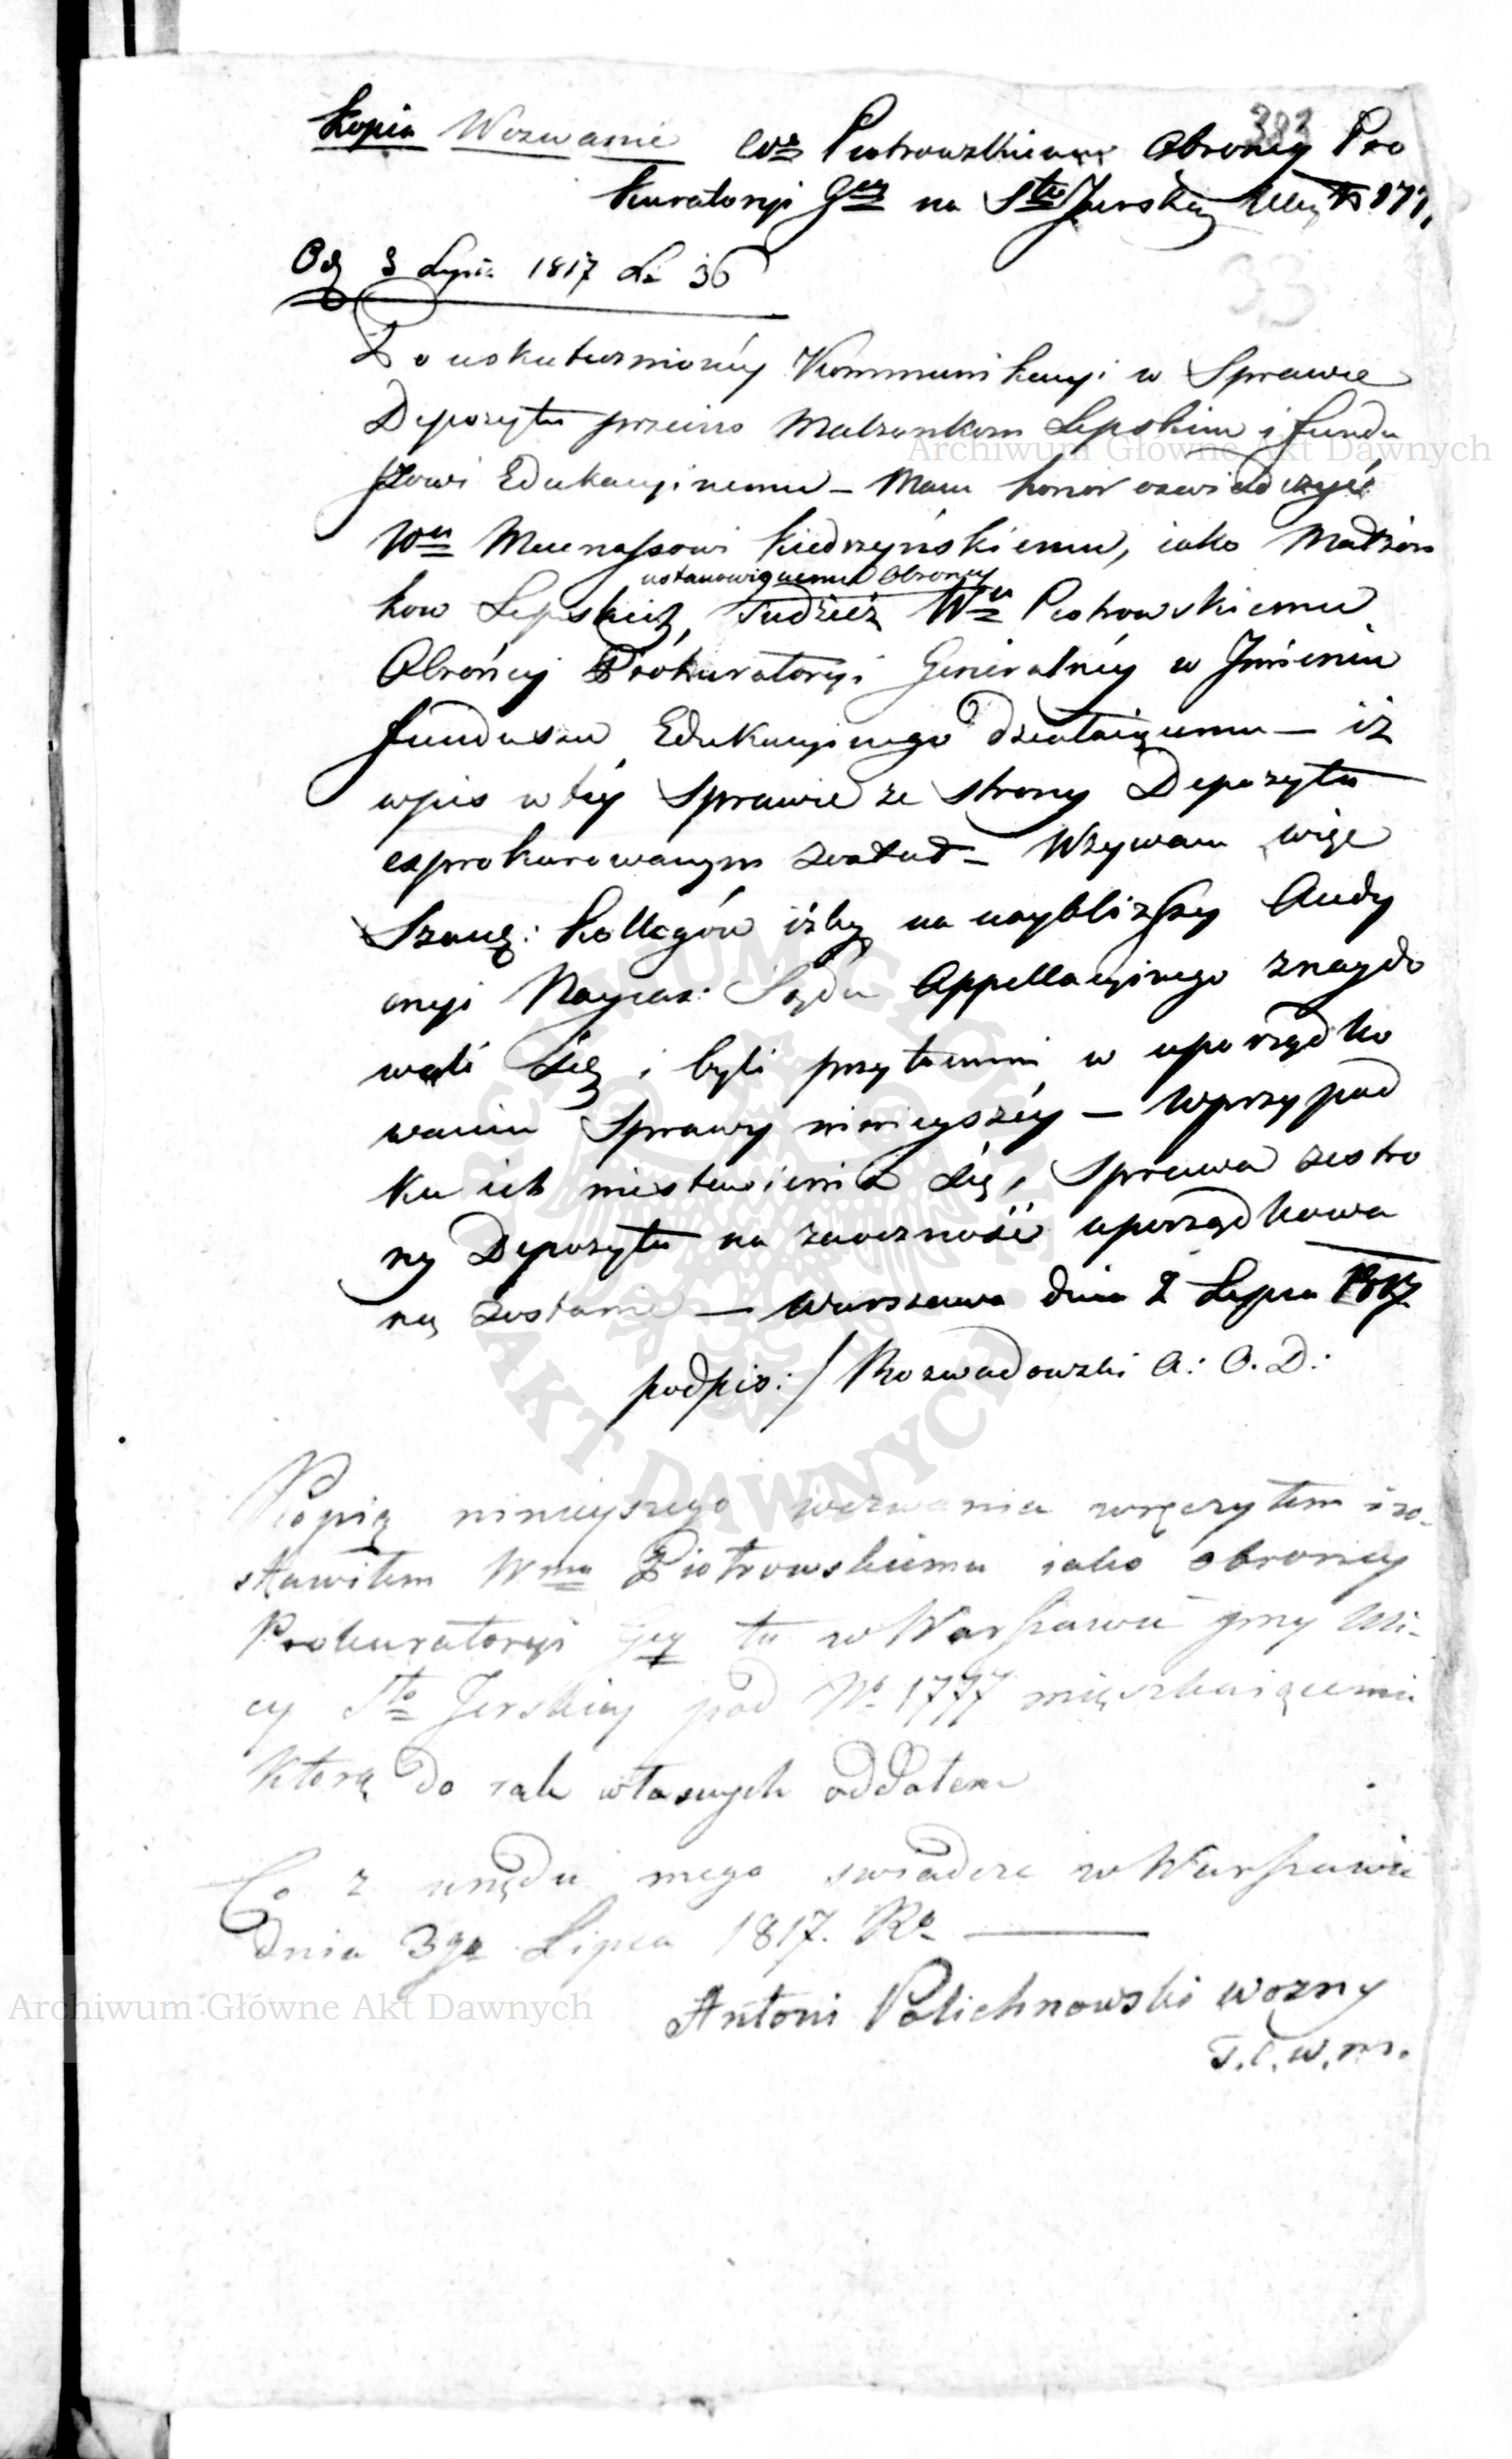 303
Kopia Wezwanie Wo Piotrowskiemu Obrońcy Pro
kuratoryi Gey na Sto Jurskiey Ulicy
Od 3 Lipca 1817 L: 36
33
Po uskutecznioney Kommunikacyi w Sprawie
Depozytu przeciwko Małżonkom Lepskim i fundu
szowi Edukacyinemu – Mam honor oswiadczyć
Wmu Mecenassowi Kiedrzyńskiemu, iako Małżon
ustanowionemu Obrońcy
kow Lepskich, Tudzież Wmu Piotrowskiemu
Obrońcy Prokuratoryi Generalnéy w Jmieniu
funduszu Edukacyinego działaiącemu – iż
wpis w téy Sprawie ze strony Depozytu
exprokurowanym został – Wzywam więc
Szanę: Kollegów iżby na naybliższey Audy
encyi Naywż: Sądu Appellacyinego znaydo
wali się i byli przytomni w uporządko
waniu Sprawy ninieyszéy – W przypad
ku ich niestawienia się, Sprawa ze stro
ny Depozytu na zaoczność uporządkowa
ną zostanie – Warszawa dnia 2 Lipca 1817
podpis:/ Rozwadowski A: O. D:
Kopią ninieyszego wezwania wręczyłem i zo-
stawiłem Wmu Piotrowskiemu iako obrońcy
Prokuratoryi Gey tu w Warszawie przy Uli-
cy Sto Jerskiey pod No 1777 mięszkaiącemu
Którą do rąk własnych oddałem
Co z urzędu mego swiadczę w Warszawie
Dnia 3go Lipca 1817. Ro
Antoni Polichnowski wozny
T. C. W. M.
Archiwum Główne Akt Dawnych
Archiwum Główne Akt Dawnych
ARCHIWUM GŁÓWNE AKT DAWNYCH